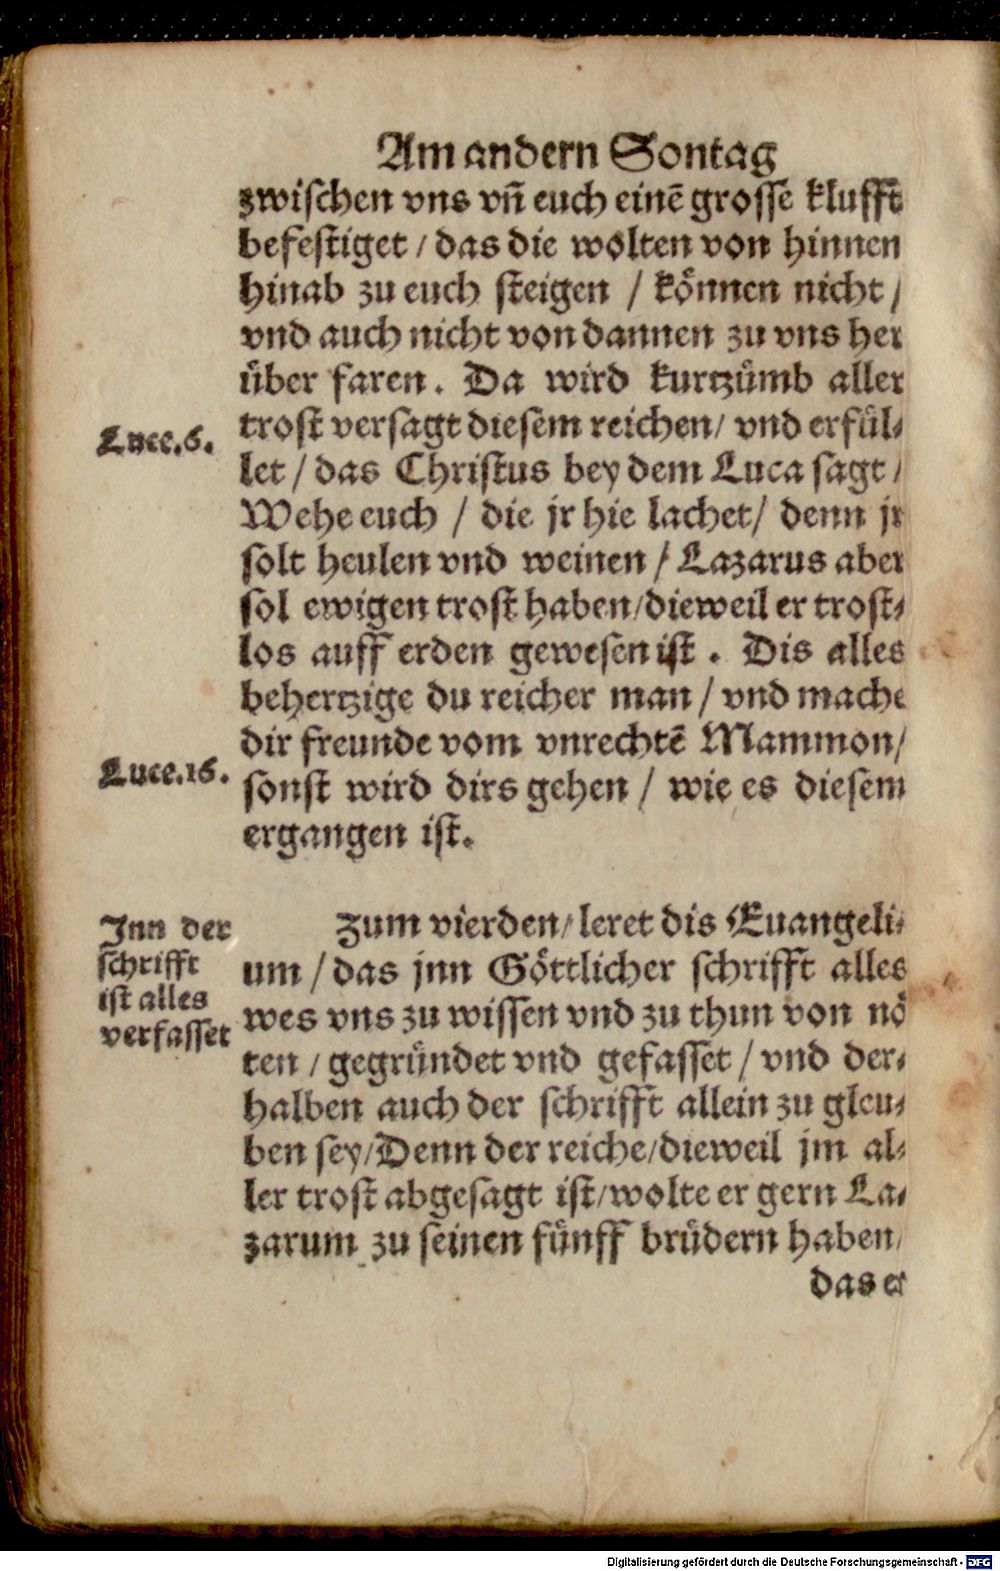 Am andern Sontag
zwischen vns vñ euch einē grosse klufft
befestiget / das die wolten von hinnen
hinab zu euch steigen / können nicht /
vnd auch nicht von dannen zu vns her
über faren. Da wird kurtzümb aller
Luce.6.
trost versagt diesem reichen / vnd erfül⸗
let / das Christus bey dem Luca sagt /
Wehe euch / die jr hie lachet / denn jr
solt heulen vnd weinen / Lazarus aber
sol ewigen trost haben / dieweil er trost⸗
los auff erden gewesen ist . Dis alles
behertzige du reicher man / vnd mache
dir freunde vom vnrechtē Mammon /
Luce.16.
sonst wird dirs gehen / wie es diesem
ergangen ist.
Inn der
schrifft
ist alles
verfasset
Zum vierden / leret dis Euangeli⸗
um / das jnn Göttlicher schrifft alles
wes vns zu wissen vnd zu thun von nö
ten / gegründet vnd gefasset / vnd der⸗
halben auch der schrifft allein zu gleu⸗
ben sey / Denn der reiche / dieweil jm al⸗
ler trost abgesagt ist / wolte er gern La⸗
zarum zu seinen fünff brüdern haben /
das er
Digitalisierung gefördert durch die Deutsche Forschungsgemeinschaft - DFG